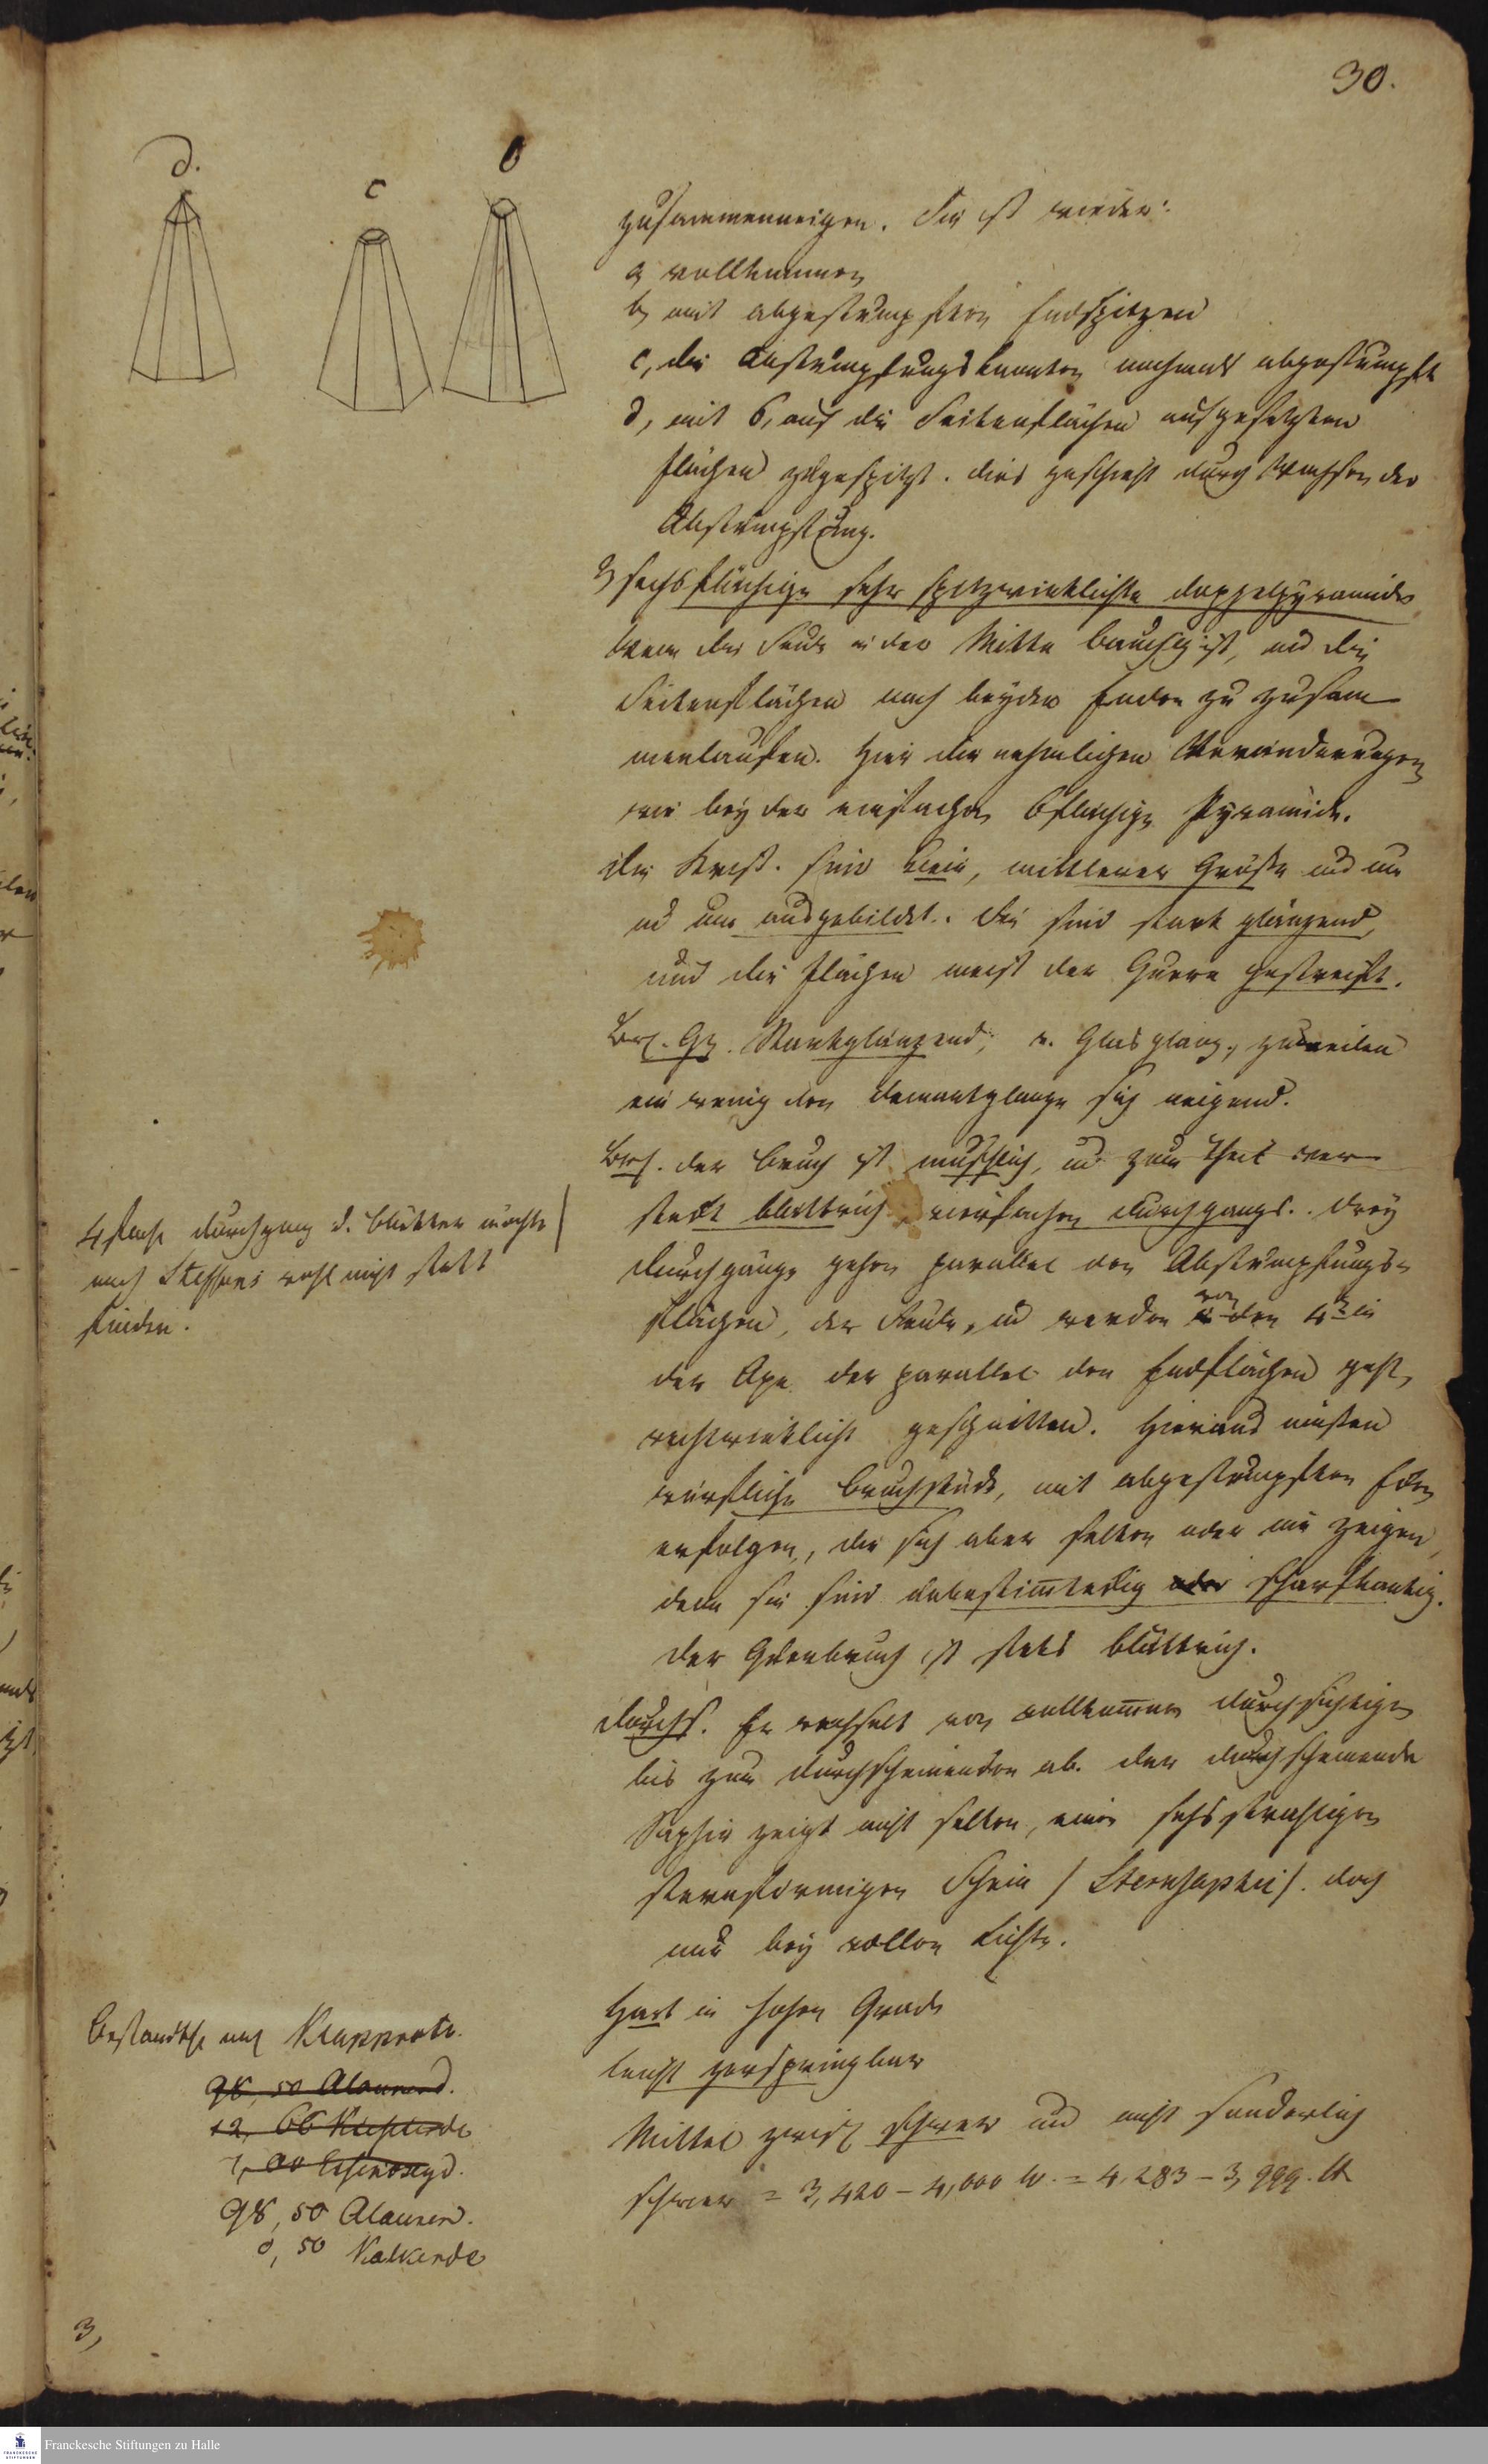 30.
d.
c
b
zusammenneigen. Sie ist wieder:
a vollkommen
b, mit abgestumpften Endspitzen
c, die Abstumpfungskanten nochmals abgestumpft
d, mit 6, auf die Seitenflächen aufgesetzten
Flächen zugespitzt. dies geschieht durch Wachsen der
Abstumpfung.
3, sechsflächige sehr spitzwinklichte doppelpyramide
wenn die Säule in der Mitte bauchig ist, und die
Seitenflächen nach beyden Enden zu zusam
menlaufen. Hier die nehmlichen Veränderungen
wie bey der einfachen 6flächige Pyramide.
die Kryst. sind klein, mittlerer Größe und um
und um ausgebildet. Sie sind stark glänzend,
und die Flächen meist der Queere gestreift.
Starkglänzend; v. Glasglanz, zuweilen
ein wenig dem demantglanze sich neigend.
Brch. der Bruch ist muschlich, und zum Theil ver
steckt blättrich, vierfachen durchgangs. drey
durchgänge gehen parallel den Abstumpfungs-
flächen, der Säule, und werden von dem 4t. in
der Axe der parallel den Endflächen geht,
rechtwinklicht geschnitten. Hieraus müßen
würfliche Bruchstücke, mit abgestumpften Ecken
erfolgen, die sich aber selten oder nie zeigen,
denn sie sind unbestimteckig oder scharfkantig.
der Queerbruch ist stets blättrich.
durchs. Er wechselt von vollkommen durchsichtigen
bis zum durchscheinenden ab. der durchscheinende
Saphir zeigt nicht selten, einen sechsstrahligen
sternförmigen Schein / Sternsaphir /. doch
nur bey vollen Lichte.
Hart in hohen Grade
leicht zerspringbar
Mittel zwisch schwer und nicht sonderlich
schwer = 3,420 – 4,000 W. = 4,283 – 3,999.
4fache durchgang d. Blätter möchte
nach Steffens wohl nicht statt
finden.
Bestandth nach Klapproth.
98, 50 Alaunerd.
12, 66 Kieselerde
1, 00 Eisenoxyd.
98, 50 Alaunerd.
0, 50 Kalkerde
3,
FRANCKESCHE STIFTUNGEN
Franckesche Stiftungen zu Halle